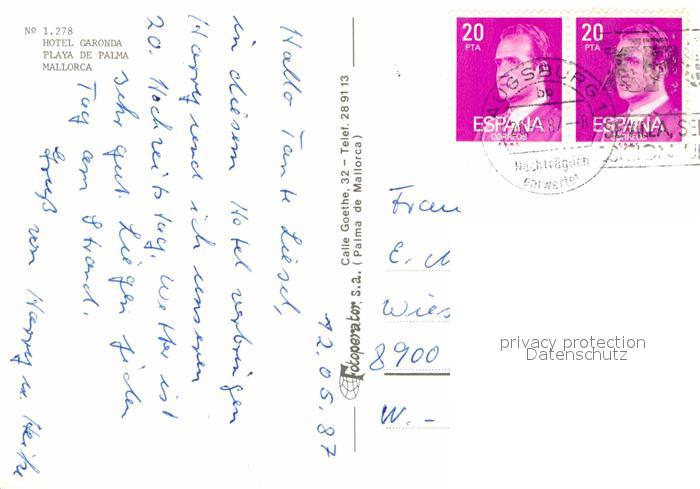 Nº 1.278
HOTEL GARONDA
PLAYA DE PALMA
MALLORCA
12.05.87
Hallo Tante Liesel,
in diesem Hotel verbringen
Harry und ich unseren
20. Hochzeitstag. Wetter ist
sehr gut. Liegen jeden
Tag am Strand.
Gruß von Harry u. Heike
Fotoperator, s.a.
Calle Goethe, 32 – Telef. 28 91 13
(Palma de Mallorca)
20
PTA
ESPAÑA
CORREOS
20
PTA
ESPAÑA
CORREOS
AUGSBURG 1
bp
Nachträglich
entwertet
Frau
E.
Wies
8900
W. -
privacy protection
Datenschutz